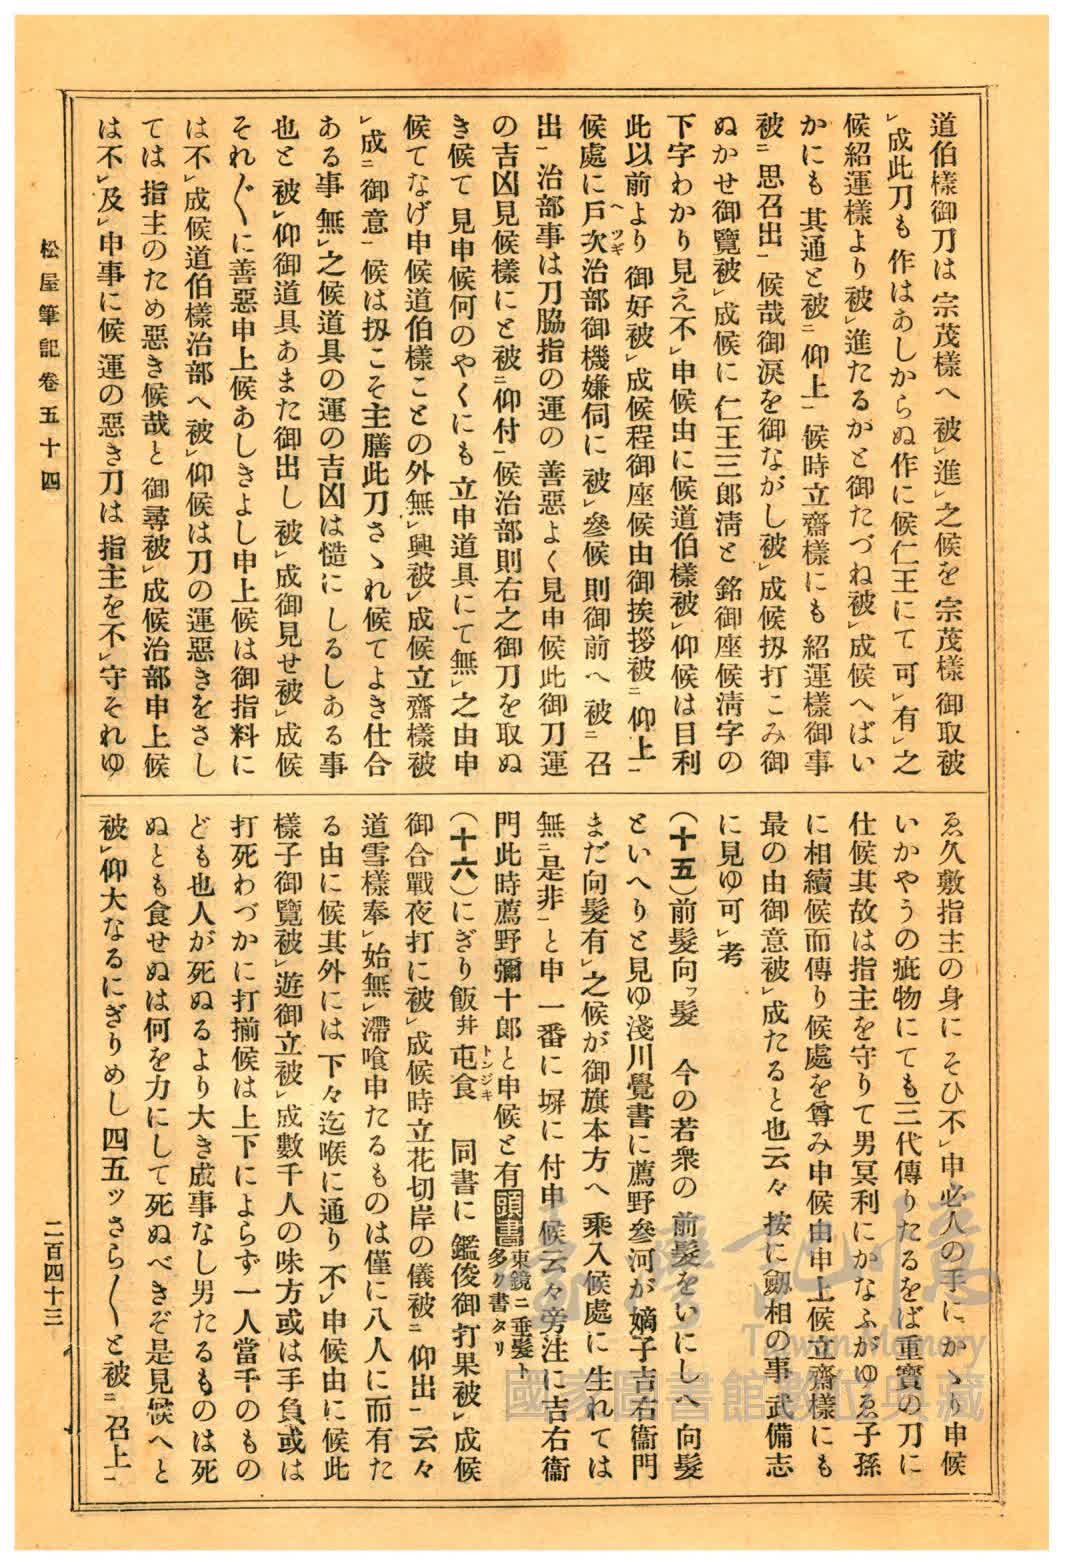 道伯樣御刀は宗茂樣へ被㆑進㆑之候を宗茂樣御取被
㆑成此刀も作はあしからぬ作に候仁王にて可㆑有㆑之
候紹運樣より被㆑進たるかと御たづね被㆑成候へばい
かにも其通と被㆓仰上㆒候時立齋樣にも紹運樣御事
被㆓思召出㆒候哉御淚を御ながし被㆑成候扨打こみ御
ぬかせ御覽被㆑成候に仁王三郞淸と銘御座候淸字の
下字わかり見え不㆑申候由に候道伯樣被㆑仰候は目利
此以前より御好被㆑成候程御座候由御挨拶被㆓仰上㆒
候處に戶次治部御機嫌伺に被㆑參候則御前へ被㆓召
ヘツギ
出㆒治部事は刀脇指の運の善惡よく見申候此御刀運
の吉凶見候樣にと被㆓仰付㆒候治部則右之御刀を取ぬ
き候て見申候何のやくにも立申道具にて無㆑之由申
候てなげ申候道伯樣ことの外無㆑興被㆑成候立齋樣被
㆑成㆓御意㆒候は扨こそ主膳此刀さゝれ候てよき仕合
ある事無㆑之候道具の運の吉凶は慥にしるしある事
也と被㆑仰御道具あまた御出し被㆑成御見せ被㆑成候
それ〴〵に善惡申上候あしきよし申上候は御指料に
は不㆑成候道伯樣治部へ被㆑仰候は刀の運惡きをさし
ては指主のため惡き候哉と御尋被㆑成候治部申上候
は不㆑及㆑申事に候運の惡き刀は指主を不㆑守それゆ
ゑ久敷指主の身にそひ不㆑申必人の手にかゝり申候
いかやうの疵物にても三代傳りたるをば重寳の刀に
仕候其故は指主を守りて男冥利にかなふがゆゑ子孫
に相續候而傳り候處を尊み申候由申上候立齋樣にも
最の由御意被㆑成たると也云々按に劔相の事武備志
に見ゆ可㆑考
（十五）前髮向ッ髮　今の若衆の前髮をいにしへ向髮
といへりと見ゆ淺川覺書に薦野參河が嫡子吉右衞門
まだ向髮有㆑之候が御旗本方へ乘入候處に生れては
無㆓是非㆒と申一番に塀に付申候云々旁注に吉右衞
門此時薦野彌十郞と申候と有頭書東鏡ニ垂髮ト多ク書タリ
（十六）にぎり飯幷屯食　同書に鑑俊御打果被㆑成候
トンジキ
御合戰夜打に被㆑成候時立花切岸の儀被㆓仰出㆒云々
道雪樣奉㆑始無㆑滯喰申たるものは僅に八人に而有た
る由に候其外には下々迄喉に通り不㆑申候由に候此
樣子御覽被㆑遊御立被㆑成數千人の味方或は手負或は
打死わづかに打揃候は上下によらず一人當千のもの
ども也人が死ぬるより大き成事なし男たるものは死
ぬとも食せぬは何を力にして死ぬべきぞ是見候へと
被㆑仰大なるにぎりめし四五ッさら〳〵と被㆓召上㆒
松屋筆記卷五十四
二百四十三
臺灣記憶
Taiwan Memory
國家圖書館數位典藏